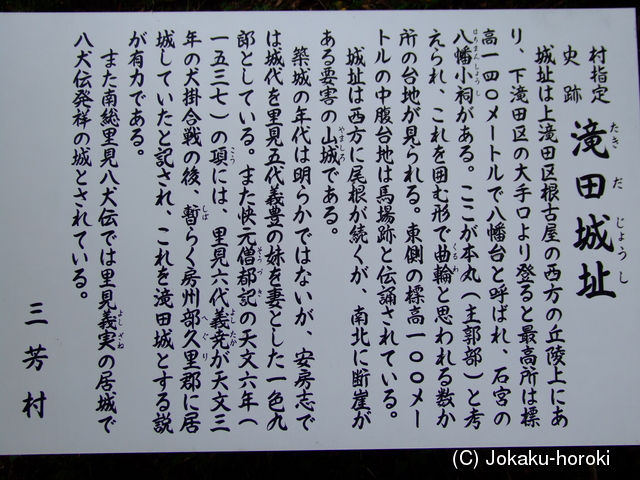 村指定
史跡
滝田城址
たきだじょうし
城址は上滝田区根古屋の西方の丘陵上にあ
り、下滝田区の大手口より登ると最高所は標
高一四〇メートルで八幡台と呼ばれ、石宮の
八幡小祠がある。ここが本丸（主郭部）と考
はちまんしょうし
えられ、これを囲む形で曲輪と思われる数か
くるわ
所の台地が見られる。東側の標高一〇〇メー
トルの中腹台地は馬場跡と伝誦されている。
城址は西方に尾根が続くが、南北に断崖が
ある要害の山城である。
やましろ
築城の年代は明らかではないが、安房志で
は城代を里見五代義豊の妹を妻とした一色九
郎としている。また快元僧都記の天文六年（
そうづき
一五三七）の項には、里見六代義尭が天文三
こう
よしたか
年の犬掛合戦の後、暫らく房州部久里郡に居
しば
へぐり
城していたと記され、これを滝田城とする説
が有力である。
また南総里見八犬伝では里見義実の居城で
よしざね
八犬伝発祥の城とされている。
三芳村
(C) Jokaku-horoki